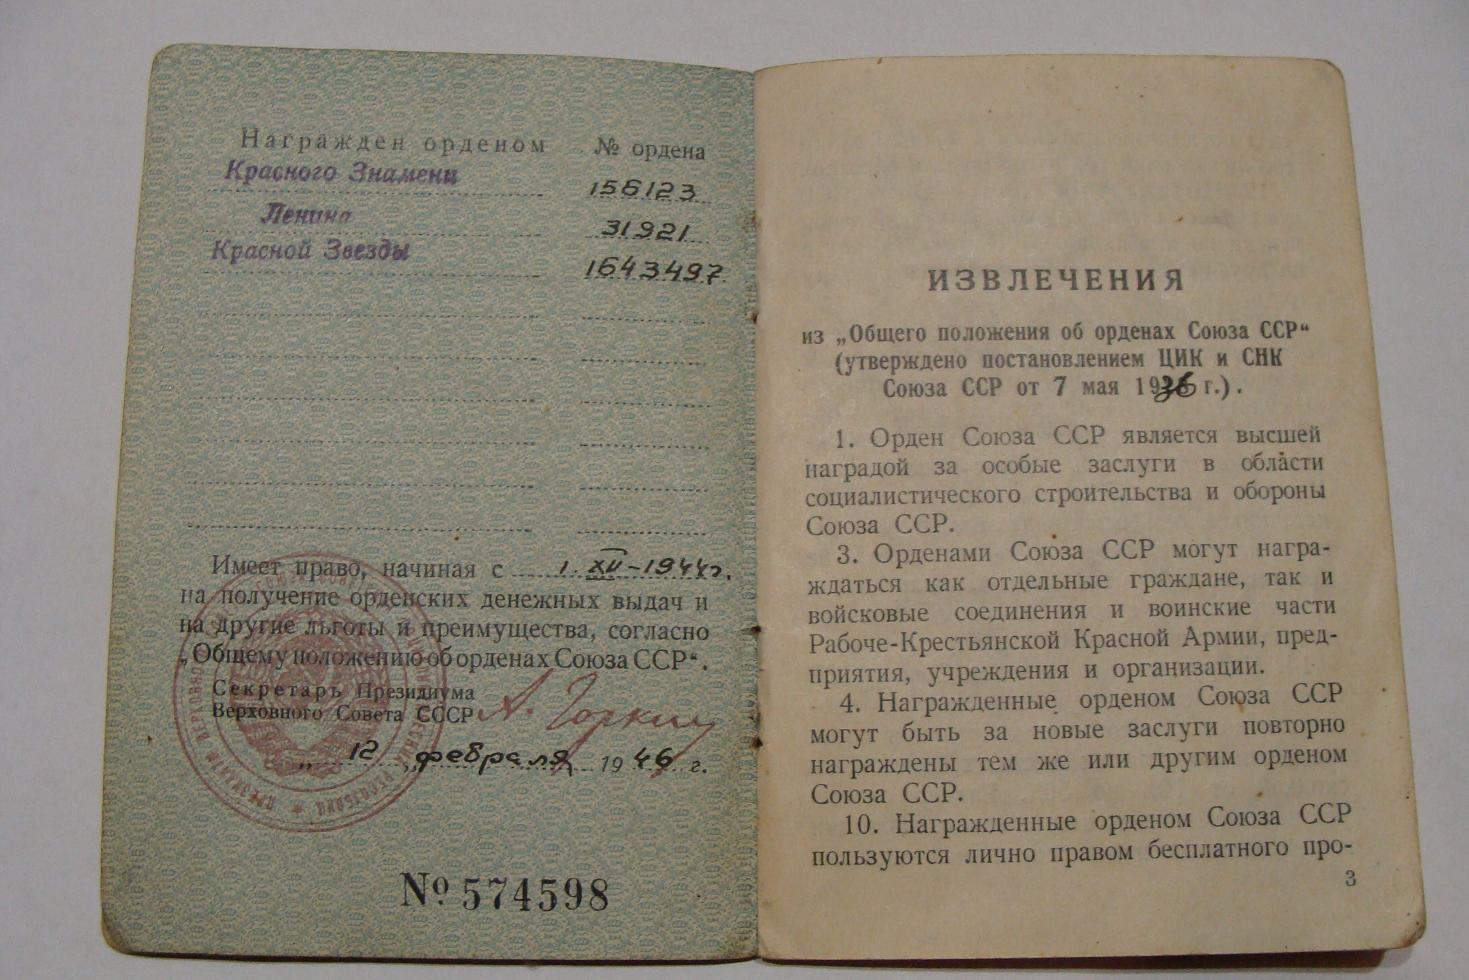 Награжден орденом № ордена
Красного Знамени 156123
Ленина 31921
Красной Звезды 1643497
Имеет право, начиная с 1. XII-1944г.
на получение орденских денежных выдач и
на другие льготы и преимущества, согласно
„Общему положению об орденах Союза ССР“.
Секретарь Президиума
Верховного Совета СССР А. Горкин
„12„ февраля 1946 г.
№ 574598
ИЗВЛЕЧЕНИЯ
из „Общего положения об орденах Союза ССР“
(утверждено постановлением ЦИК и СНК
Союза ССР от 7 мая 1936 г.).
1. Орден Союза ССР является высшей
наградой за особые заслуги в области
социалистического строительства и обороны
Союза ССР.
3. Орденами Союза ССР могут награ-
ждаться как отдельные граждане, так и
войсковые соединения и воинские части
Рабоче-Крестьянской Красной Армии, пред-
приятия, учреждения и организации.
4. Награжденные орденом Союза ССР
могут быть за новые заслуги повторно
награждены тем же или другим орденом
Союза ССР.
10. Награжденные орденом Союза ССР
пользуются лично правом бесплатного про-
3